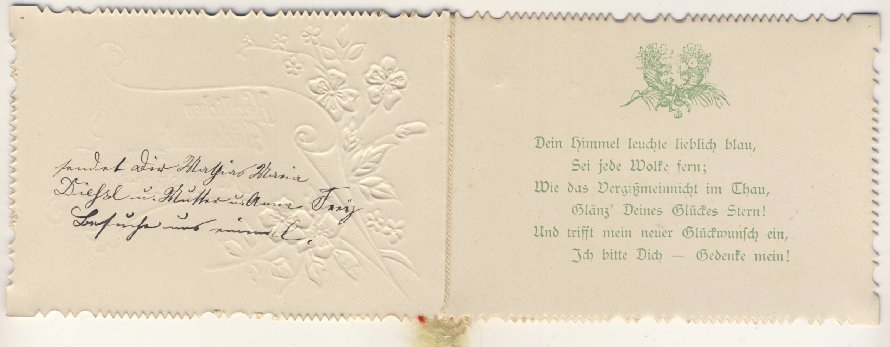 sendet Dir Mathias Maria
Diehsl u. Mutter u. Anna Frey
Besuche uns einmal!
Dein Himmel leuchte lieblich blau,
Sei jede Wolke fern;
Wie das Vergißmeinnicht im Thau,
Glänz' Deines Glückes Stern!
Und trifft mein neuer Glückwunsch ein,
Ich bitte Dich — Gedenke mein!